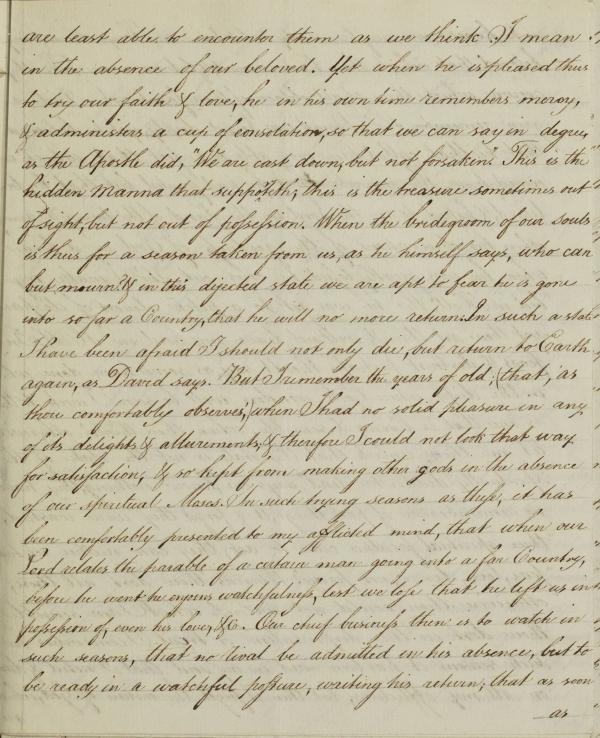 are least able to encounter them as we think I mean
in the absence of our beloved. Yet when he is pleased thus
to try our faith & love, he in his own time remembers mercy,
& administers a cup of consolation, so that we can say in degree,
as the Apostle did, "We are cast down, but not forsaken." This is the
hidden Manna that supporteth; this is the treasure sometimes out
of sight, but not out of possession. When the bridegroom of our souls
is thus for a season taken from us, as he himself says, who can
but mourn? & in this dejected state we are apt to fear he is gone
into so far a Country, that he will no more return. In such a state
I have been afraid I should not only die, but return to Earth
again, as David says. But I remember the years of old; (that, as
thou comfortably observes,) when I had no solid pleasure in any
of its delights & allurements, & therefore I could not look that way
for satisfaction, & so kept from making other gods in the absence
of our spiritual Moses. In such trying seasons as these, it has
been comfortably presented to my afflicted mind, that when our
Lord relates the parable of a certain man going into a far Country,
before he went he enjoins watchfulness, lest we lose that he left us in
possession of, even his love, &c. Our chief business then is to watch in
such seasons, that no rival be admitted in his absence, but to
be ready in a watchful posture, waiting his return; that as soon
as